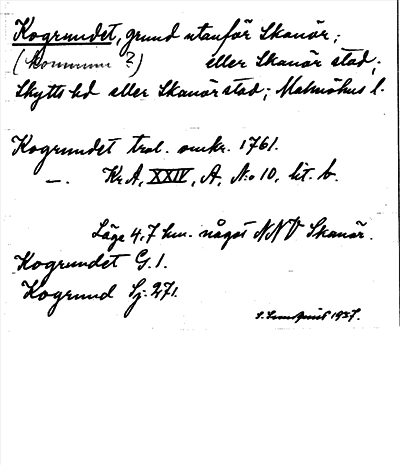 Kogrundet, grund utanför Skanör;
(Kommun ?) eller Skanör stad;
Skytts hd eller Skanör stad; Malmöhus l.
Kogrundet trol. omkr. 1761.
—. Kr. A, XXIV, A, N:o 10, lit. b.
Läge 4,7 km. något NNV Skanör.
Kogrundet G. 1.
Kogrund Sj. 271.
1937.